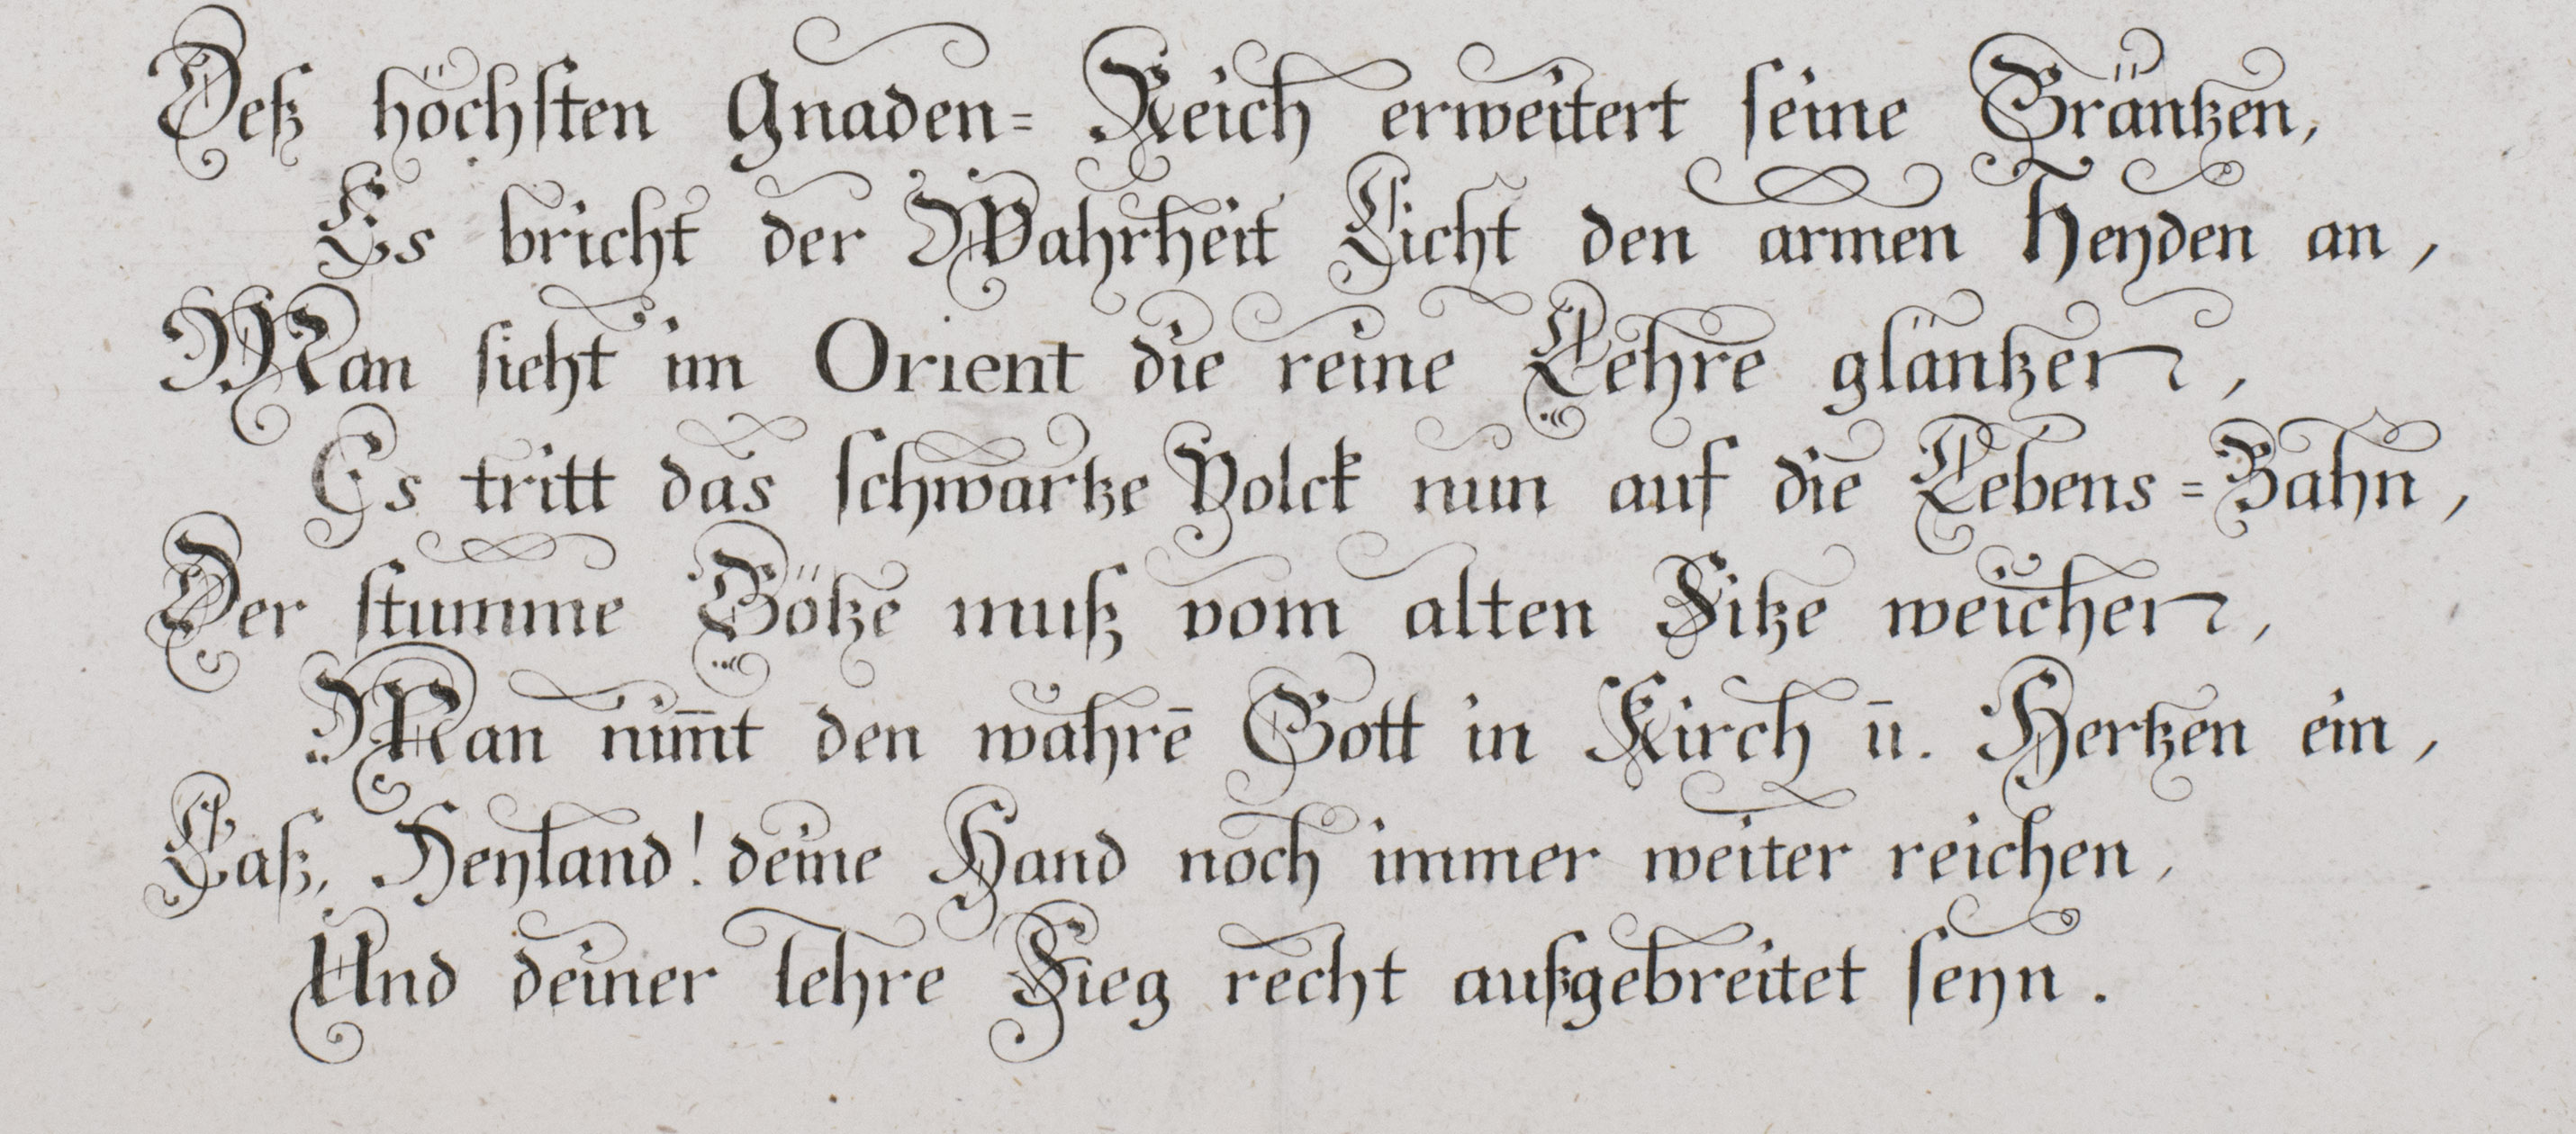 Deß höchsten Gnaden= Reich erweitert seine Gräntzen,
Es bricht der Wahrheit Licht den armen Heyden an,
Man sieht im Orient die reine Lehre gläntzen,
Es tritt das schwartze Volck nun auf die Lebens=Bahn,
Der stumme Götze muß vom alten Sitze weichen,
Man nim̅t den wahrē Gott in Kirch ū. Hertzen ein,
Laß, Heyland! deine Hand noch immer weiter reichen,
Und deiner lehre Sieg recht außgebreitet seyn.